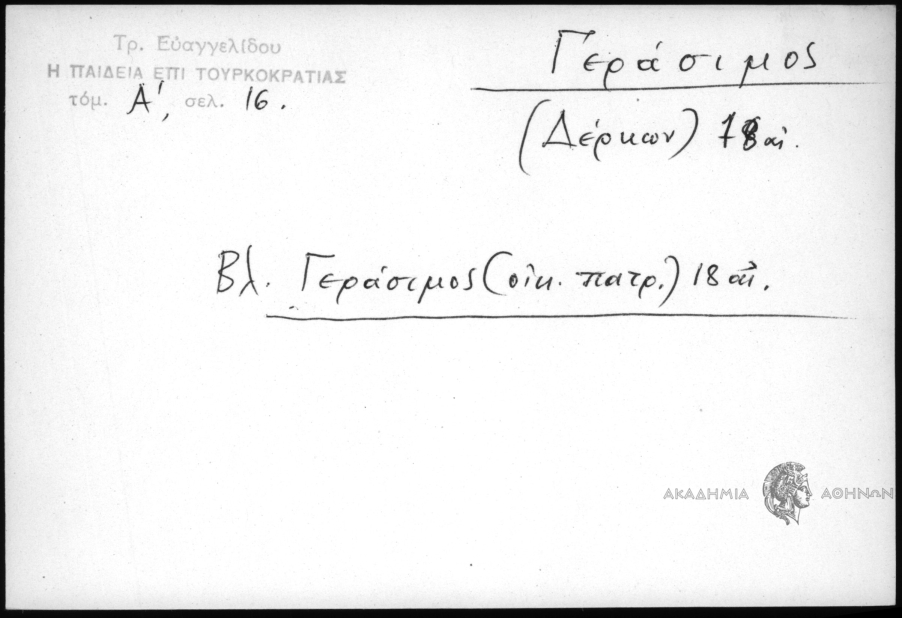 Τρ. Εὐαγγελίδου
Η ΠΑΙΔΕΙΑ ΕΠΙ ΤΟΥΡΚΟΚΡΑΤΙΑΣ
τόμ. Α', σελ. 16.
Γεράσιμος
(Δέρκων) 18 αἰ.
Βλ. Γεράσιμος (οἰκ. πατρ.) 18 αἰ.
ΑΚΑΔΗΜΙΑ ΑΘΗΝΩΝ